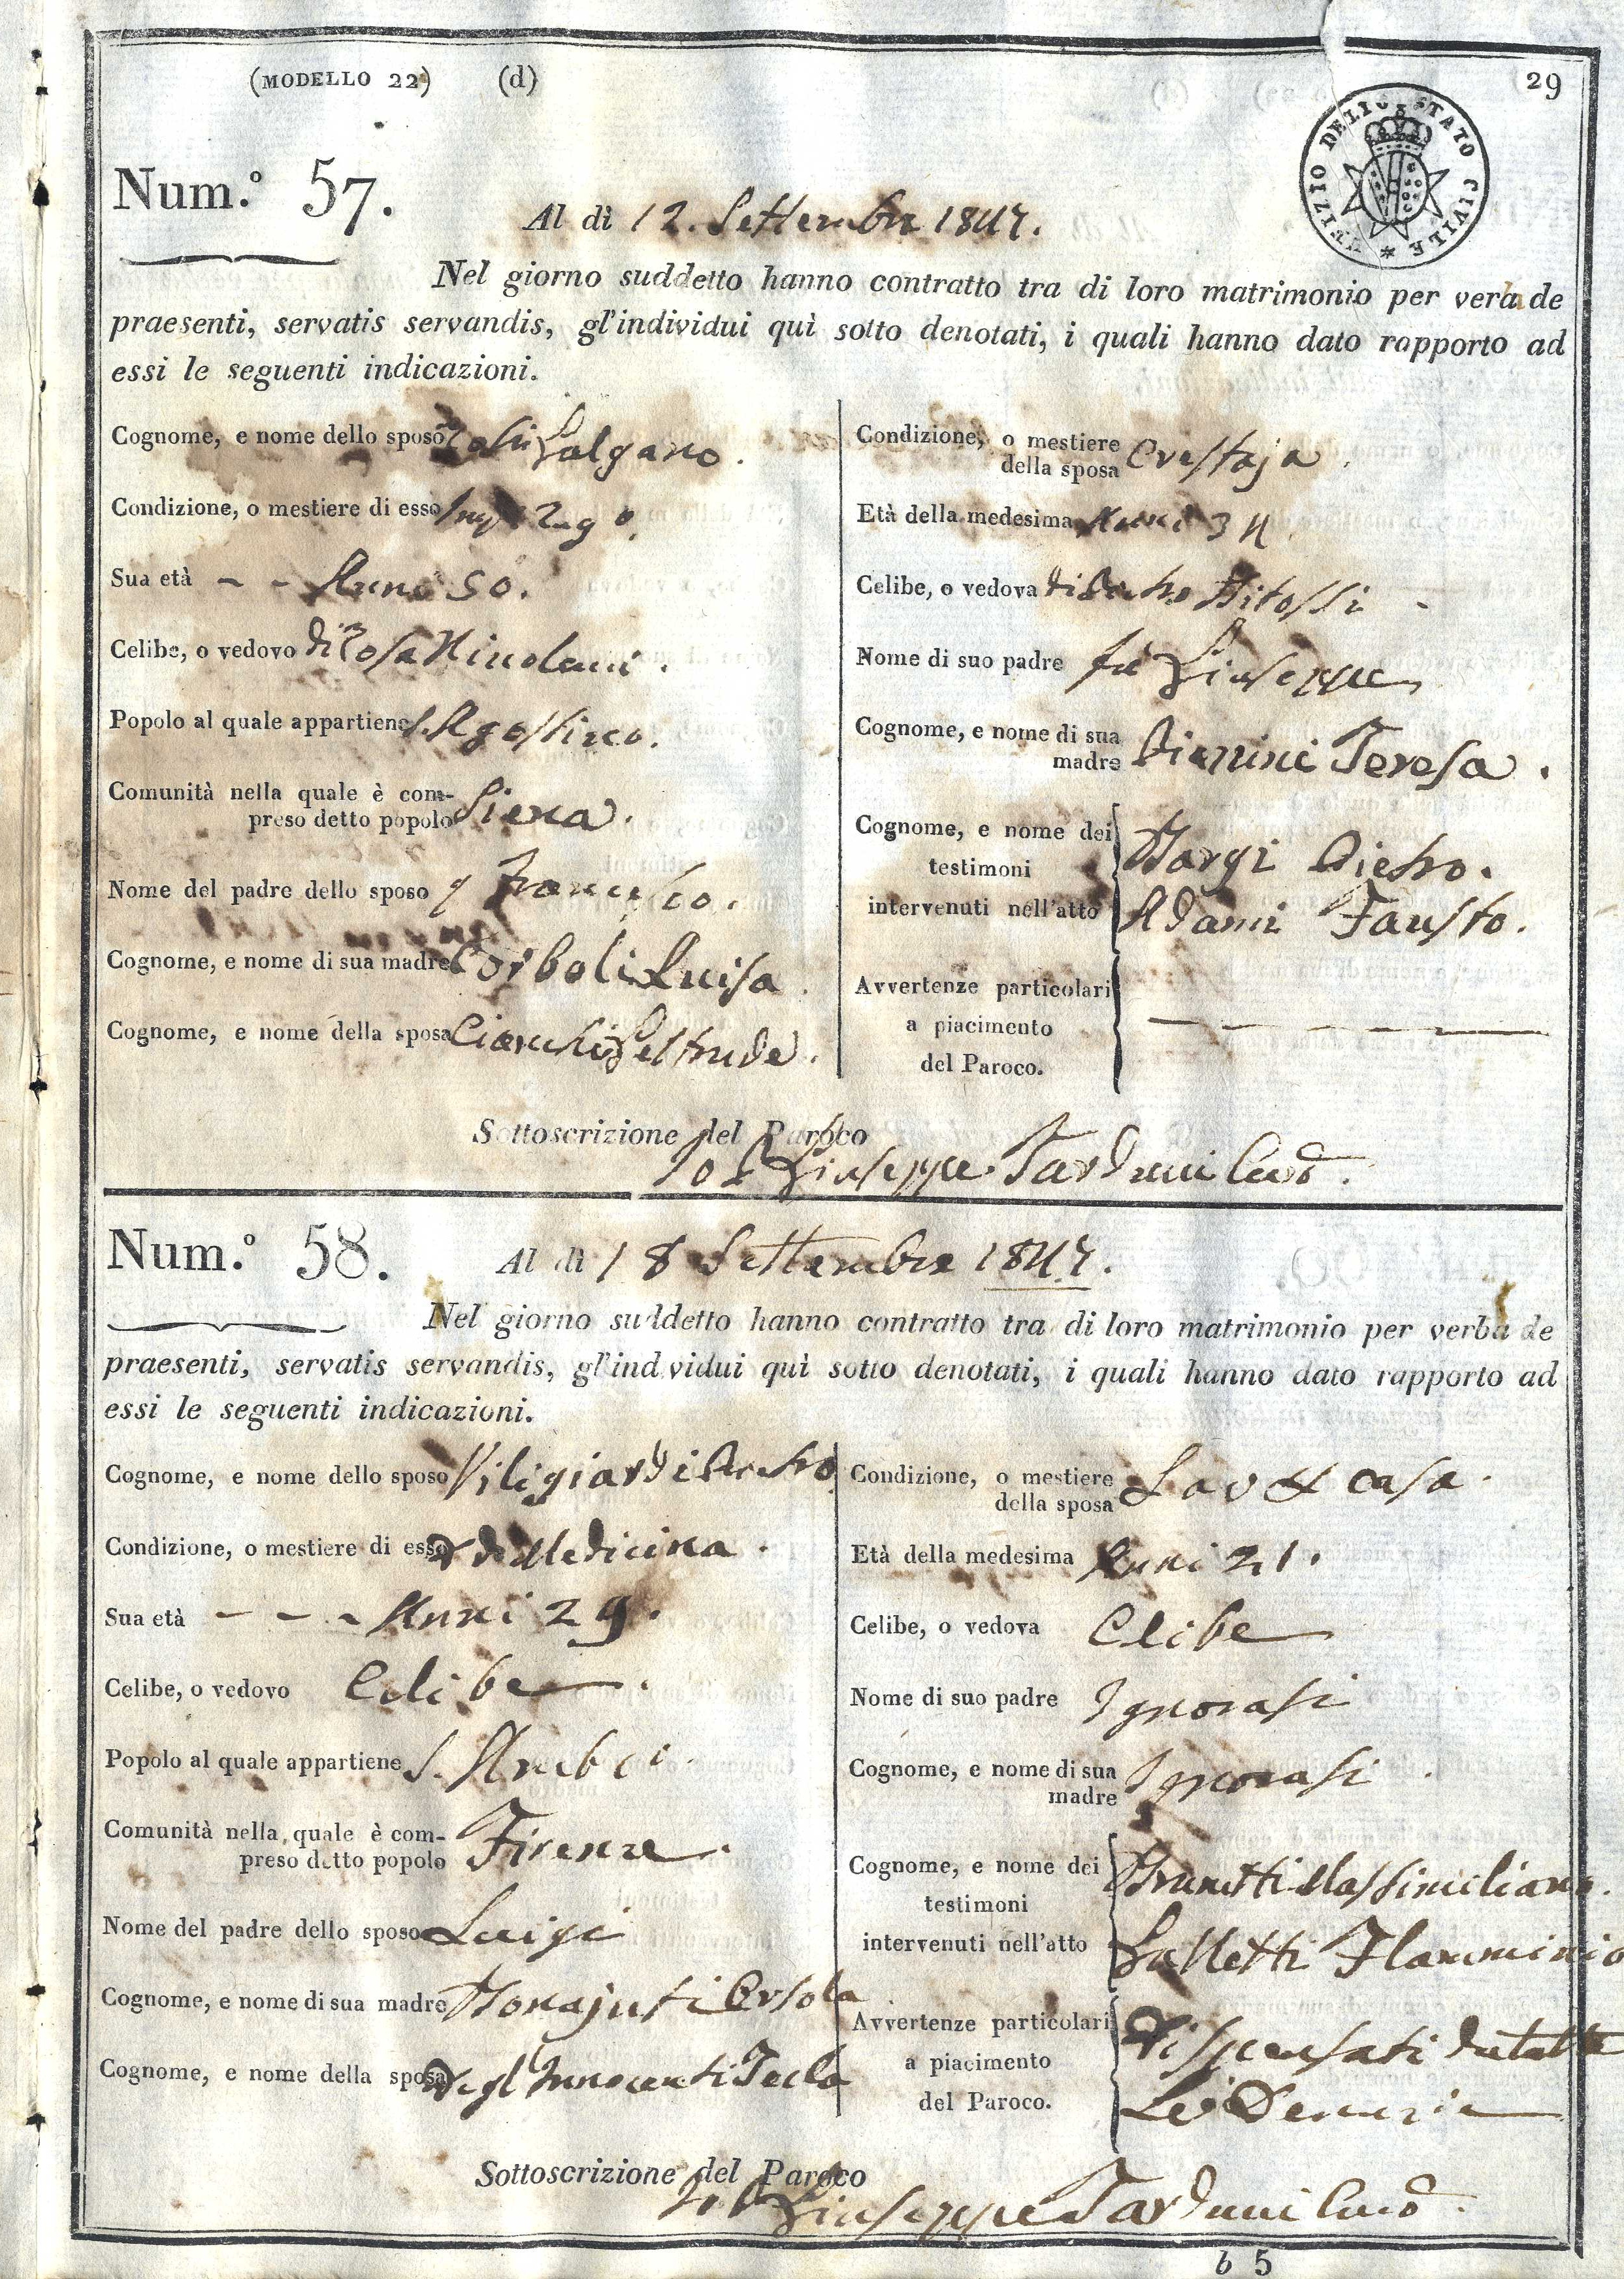 (MODELLO 22) (d)
29
UFIZIO DELLO STATO CIVILE
Num.° 57.
Al dì 12. Settembre 1847.
Nel giorno suddetto hanno contratto tra di loro matrimonio per verba de
praesenti, servatis servandis, gl'individui quì sotto denotati, i quali hanno dato rapporto ad
essi le seguenti indicazioni.
Cognome, e nome dello sposo Galgano.
Condizione, o mestiere di esso
Sua età - - Anni 50.
Celibe, o vedovo di Rosa
Popolo al quale appartiene S. Agostino.
Comunità nella quale è com-
preso detto popolo Siena.
Nome del padre dello sposo q Francesco.
Cognome, e nome di sua madre Corboli Luisa.
Cognome, e nome della sposa Cianchi Geltrude.
Condizione, o mestiere
della sposa Crestaja.
Età della medesima Anni 34
Celibe, o vedova di Pietro Bitossi
Nome di suo padre fù Giuseppe
Cognome, e nome di sua
madre Teresa.
Cognome, e nome dei
testimoni
intervenuti nell'atto
Borgi Pietro.
Adami Fausto.
Avvertenze particolari
a piacimento
del Paroco.
Sottoscrizione del Paroco
Io P. Giuseppe Tarduni Curº.
Num.° 58.
Al dì 18 Settembre 1847.
Nel giorno suddetto hanno contratto tra di loro matrimonio per verba de
praesenti, servatis servandis, gl'individui quì sotto denotati, i quali hanno dato rapporto ad
essi le seguenti indicazioni.
Cognome, e nome dello sposo Viligiardi Pietro
Condizione, o mestiere di esso Medicina.
Sua età - - - Anni 29.
Celibe, o vedovo Celibe.
Popolo al quale appartiene S.
Comunità nella quale è com-
preso detto popolo Firenze.
Nome del padre dello sposo Luigi
Cognome, e nome di sua madre Bonajuti Orsola
Cognome, e nome della sposa Degl'Innocenti Tecla
Condizione, o mestiere
della sposa casa.
Età della medesima Anni 21.
Celibe, o vedova Celibe
Nome di suo padre Ignorasi
Cognome, e nome di sua
madre Ignorasi.
Cognome, e nome dei
testimoni
intervenuti nell'atto
Brunetti Massimiliano.
Galletti Flamminio
Avvertenze particolari
a piacimento
del Paroco.
Dispensati da tutte
Le Denunzie
Sottoscrizione del Paroco
Io P. Giuseppe Tarduni Curº.
b 5